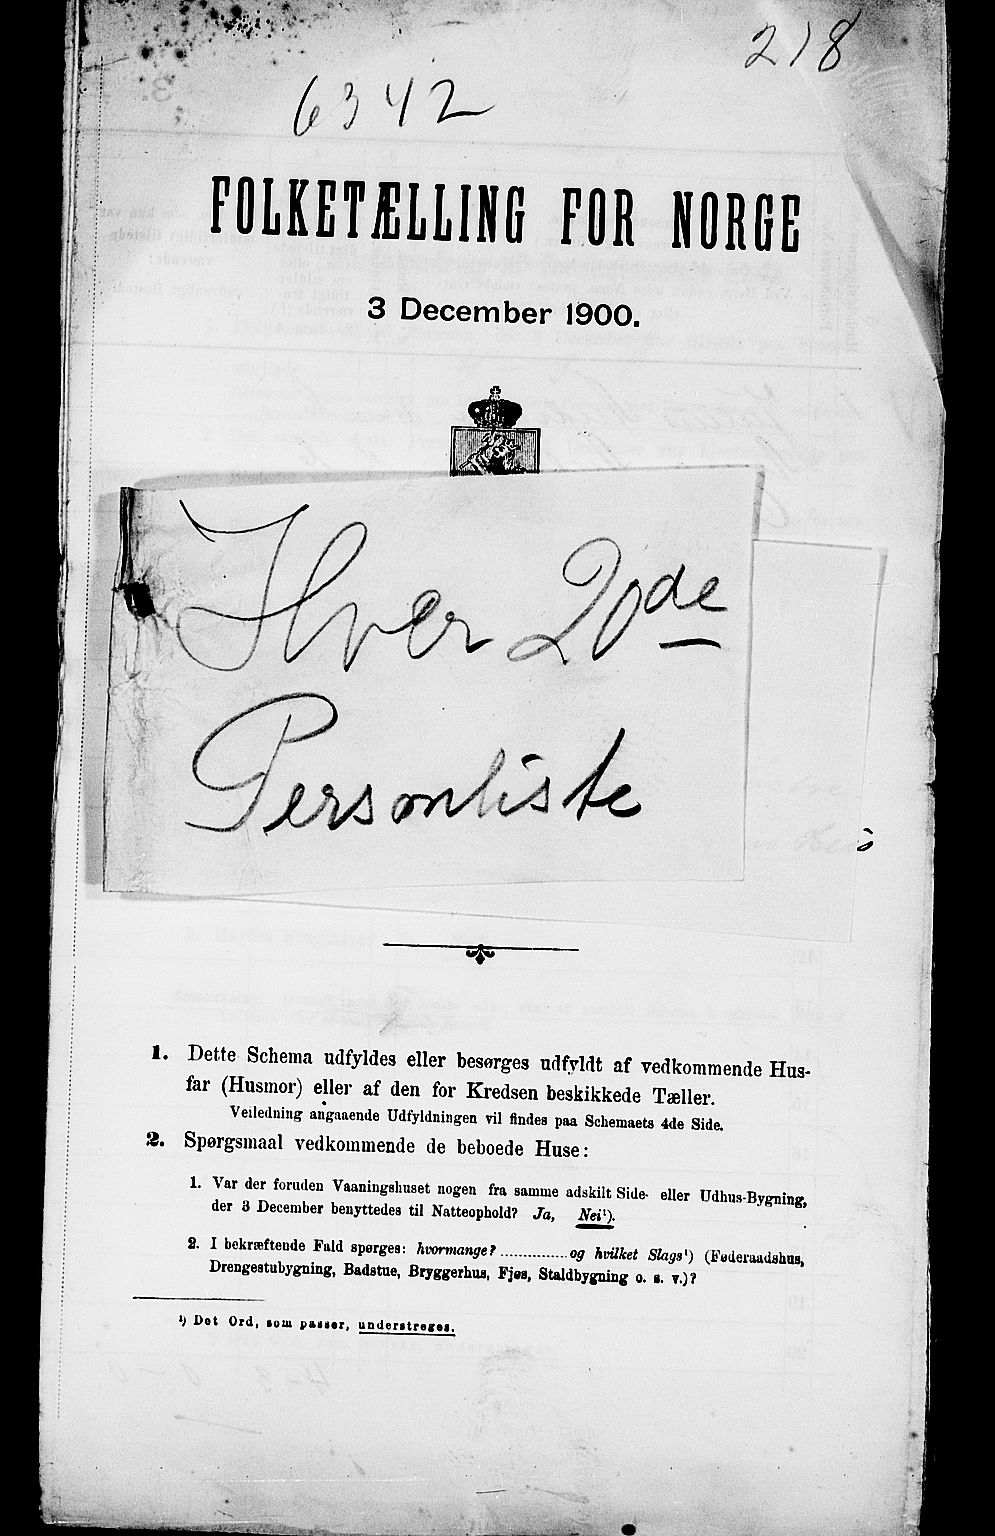 218
6342
FOLKETÆLLING FOR NORGE
3 December 1900.
Hver 20de
Personliste
1. Dette Schema udfyldes eller besørges udfyldt af vedkommende Hus-
far (Husmor) eller af den for Kredsen beskikkede Tæller.
Veiledning angaaende Udfyldningen vil findes paa Schemaets 4de Side.
2. Spørgsmaal vedkommende de beboede Huse:
1. Var der foruden Vaaningshuset nogen fra samme adskilt Side- eller Udhus-Bygning,
der 3 December benyttedes til Natteophold? Ja, Nei¹).
2. I bekræftende Fald spørges: hvormange? .............. og hvilket Slags¹) (Føderaadshus,
Drengestubygning, Badstue, Bryggerhus, Fjøs, Staldbygning o. s. v.)?
¹) Det Ord, som passer, understreges.